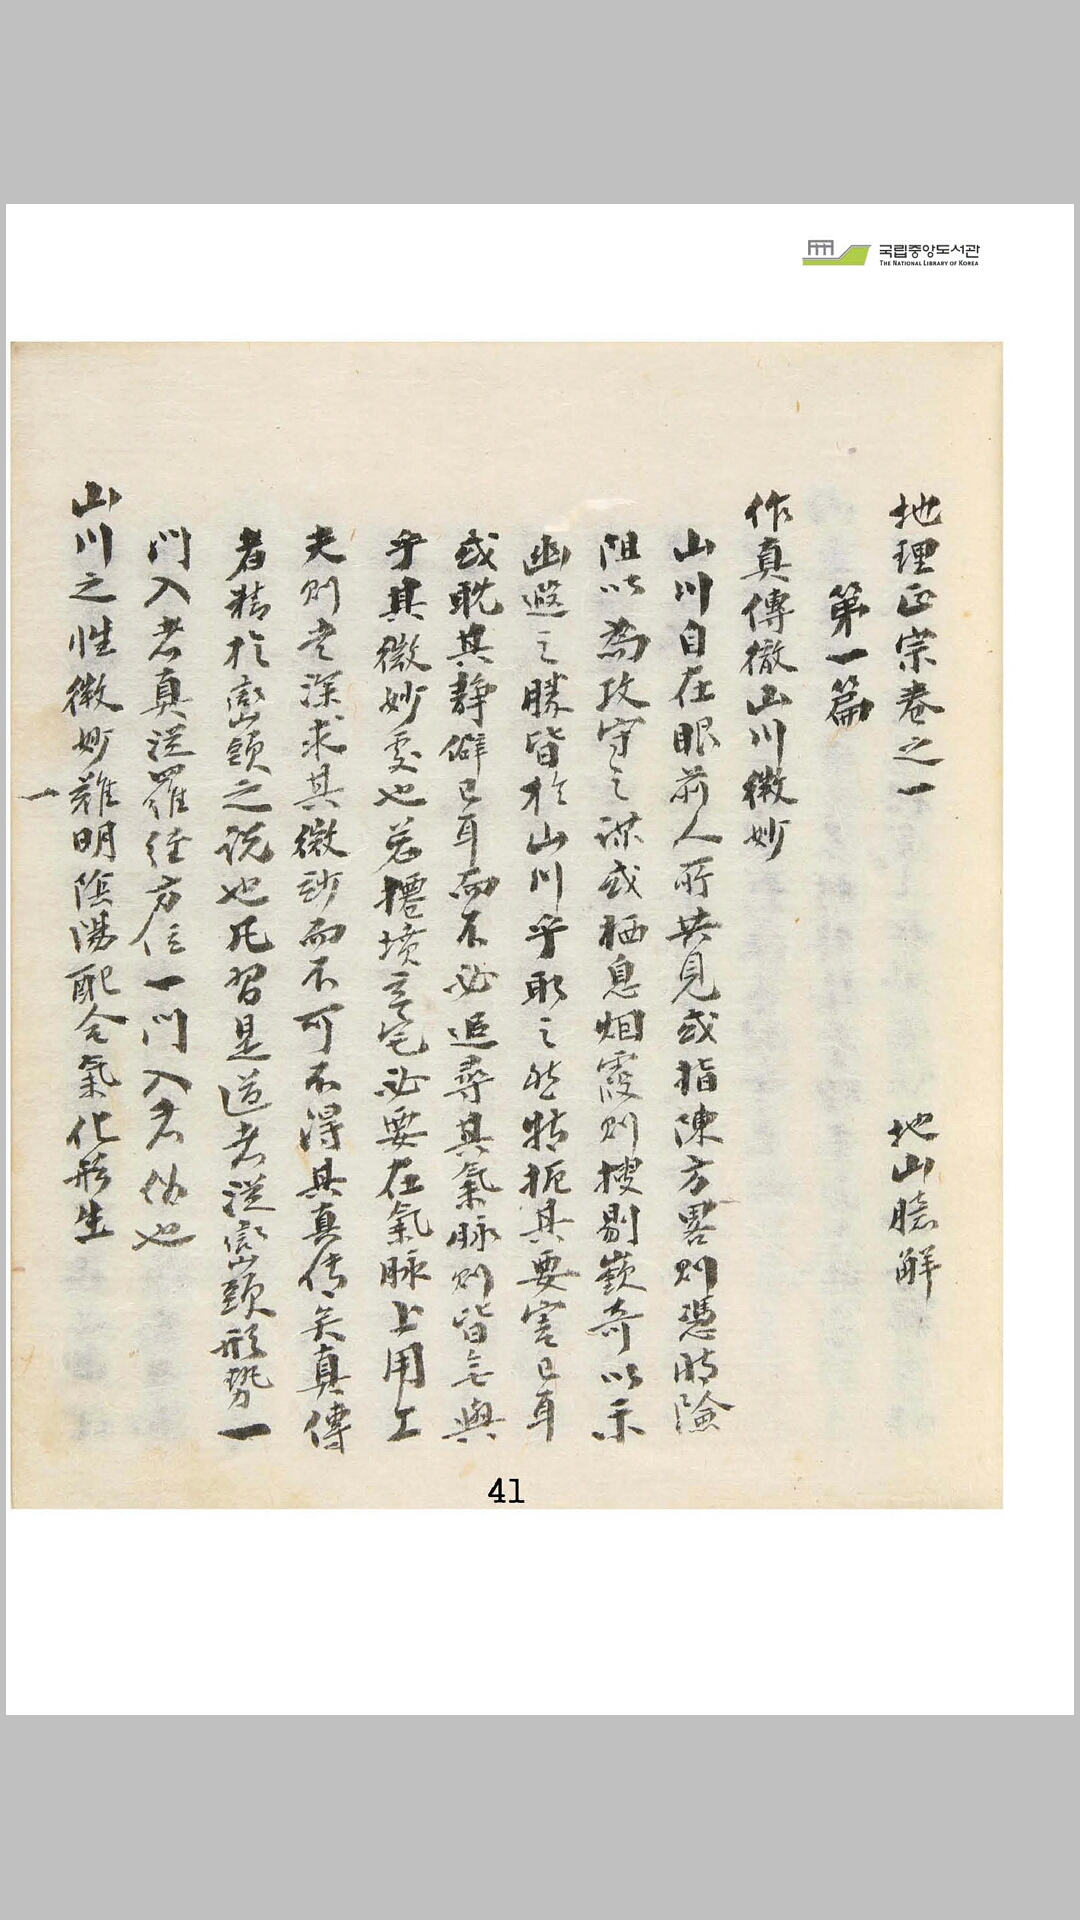 국립중앙도서관
THE NATIONAL LIBRARY OF KOREA
地理正宗卷之一 地山臆解
第一篇
作真傳徹山川微妙
山川自在眼前人所共見或指陳方畧則憑時險
阻以為攻守之謀或栖息烟霞則搜剔嶔奇以示
幽遐之勝皆於山川乎取之然特扼其要害已耳
或耽其靜僻已耳而不必追尋其氣脉則皆无與
乎其微妙處也若攇墳立宅必要在氣脉上用工
夫則尤深求其微妙而不可不得其真传矣真傳
者精於巒頭之说也凡習是道者從巒頭形势一
門入者真從羅经方位一門入者伪也
山川之性微妙難明陰陽配合氣化形生
一
41